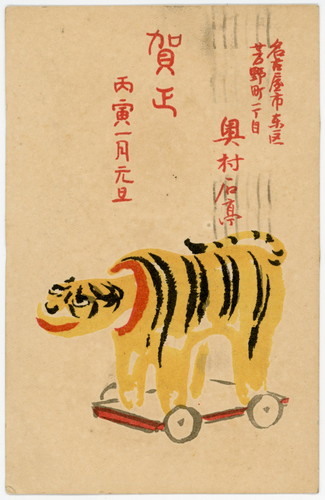 名古屋市東区
芳野町一丁目
奥村石亭
賀正
丙寅一月元旦